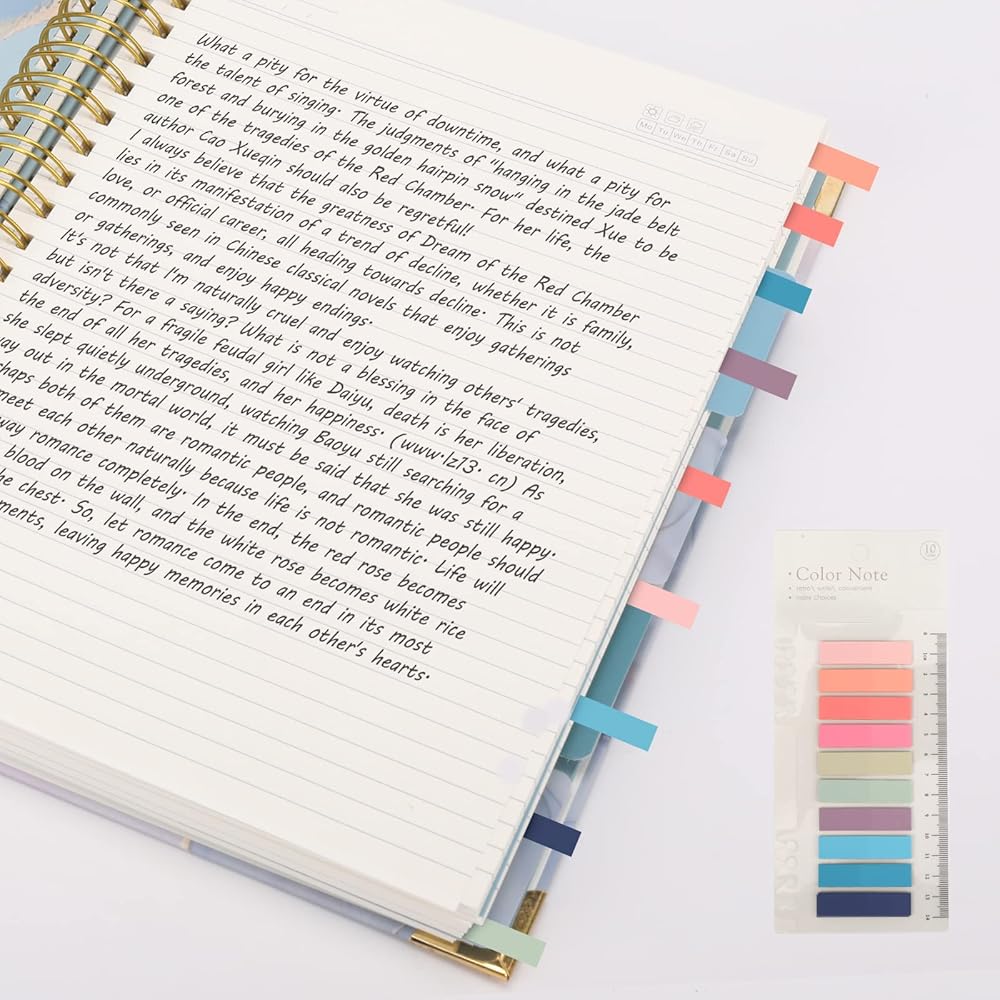 What a pity for the virtue of downtime, and what a pity for
the talent of singing. The judgments of "hanging in the jade belt
forest and burying in the golden hairpin snow" destined Xue to be
one of the tragedies of the Red Chamber. For her life, the
author Cao Xueqin should also be regretful!
I always believe that the greatness of Dream of the Red Chamber
lies in its manifestation of a trend of decline, whether it is family,
love, or official career, all heading towards decline. This is not
commonly seen in Chinese classical novels that enjoy gatherings
or gatherings, and enjoy happy endings.
It's not that I'm naturally cruel and enjoy watching others' tragedies,
but isn't there a saying? What is not a blessing in the face of
adversity? For a fragile feudal girl like Daiyu, death is her liberation,
the end of all her tragedies, and her happiness. (www.lz13. cn) As
she slept quietly underground, watching Baoyu still searching for a
way out in the mortal world, it must be said that she was still happy.
haps both of them are romantic people, and romantic people should
meet each other naturally because life is not romantic. Life will
way romance completely. In the end, the red rose becomes
blood on the wall, and the white rose becomes white rice
he chest. So, let romance come to an end in its most
ments, leaving happy memories in each other's hearts.
Mo Tu We Th Fr Sa Su
10
Color Note